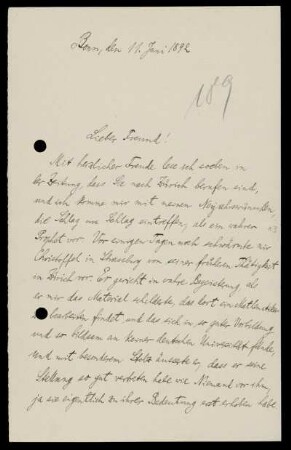 Bonn, den 11. Juni 1892
189
Lieber Freund!
Mit herzlicher Freude lese ich soeben in
der Zeitung, dass Sie nach Zürich berufen sind,
und ich komme mir mit meinen Neujahrswünschen,
die Schlag um Schlag eintreffen, als ein wahrer
Prophet vor. Vor einigen Tagen noch schwärmte mir
Christoffel in Strassburg von seiner früheren Thätigkeit
in Zürich vor. Er gerieth in wahre Begeisterung, als
er mir das Material schilderte, das dort ein Mathematiker
zu bearbeiten findet, und das sich in so guter Vorbildung
und so fleissig an keiner deutschen Universität fände,
und mit besonderem Stolz äusserte er, dass er seine
Stellung so gut vertreten habe wie Niemand vor ihm,
ja sie eigentlich zu ihrer Bedeutung erst erhoben habe